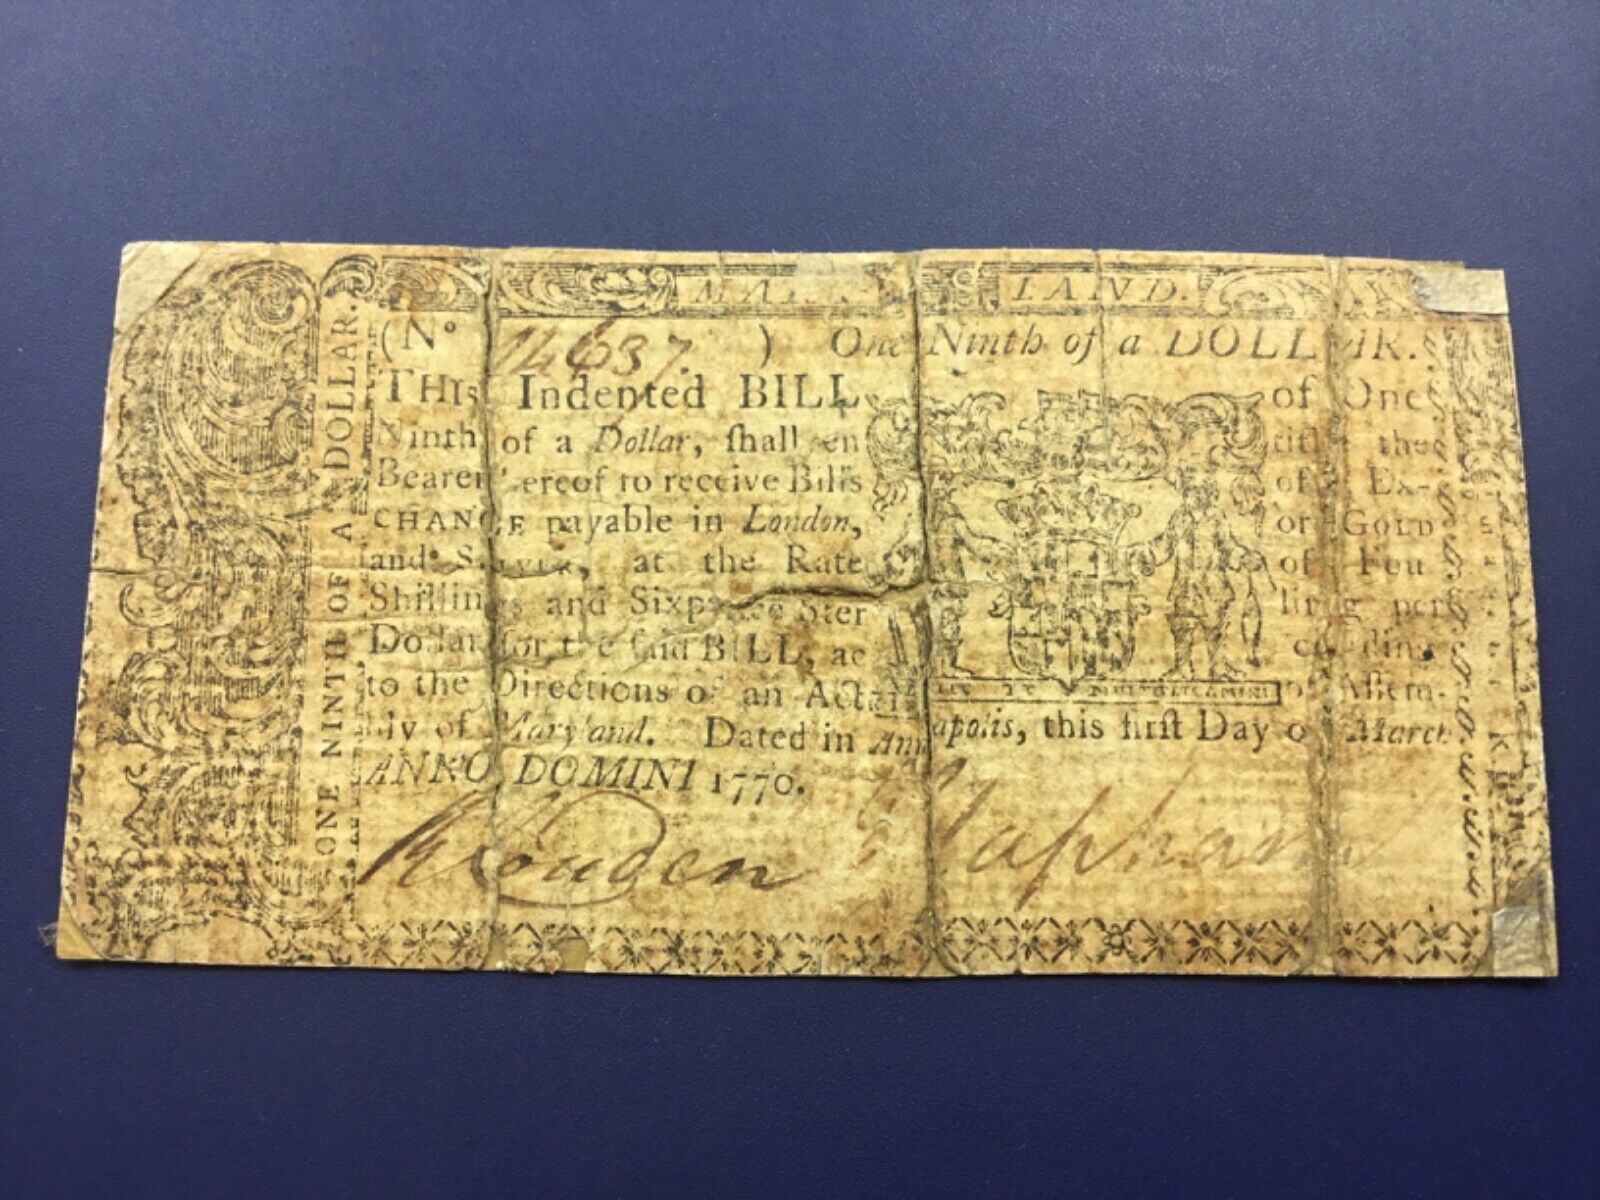 LAND.
(No 14637.) One Ninth of a DOLLAR.
THIS Indented BILL of One
Ninth of a Dollar, ſhall en the
Bearer hereof to receive Bills of Ex-
CHANGE payable in London, or GOLD
and SILVER, at the Rate of Fou
Shillings and Sixpence Ster ling per
Dollar for the ſaid BILL, ac cording
to the Directions of an Act of Aſſem-
bly of Maryland. Dated in Annapolis, this firſt Day of March
ANNO DOMINI 1770.
ONE NINTH OF A DOLLAR.
Clapham